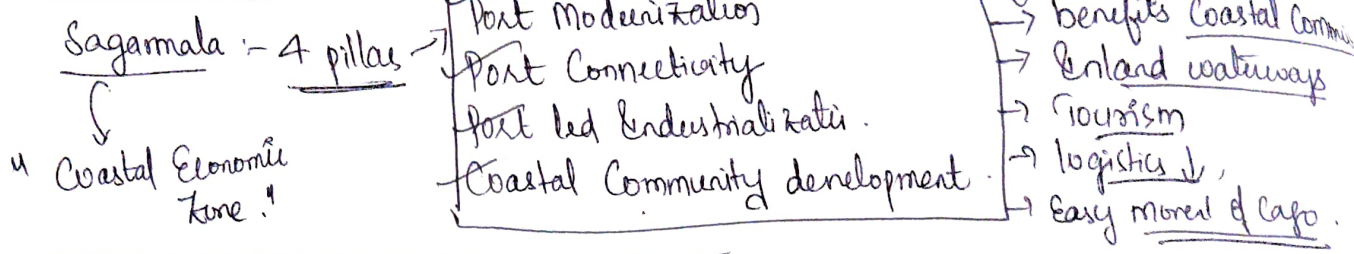 Sagarmala :- 4 pillas →
"Coastal Economic
Zone."
Port Modernization
Port Connectivity
Port led Industrialization.
Coastal Community development.
→ benefits Coastal
→ Inland waterways
→ Tourism
→ logistics ↓,
→ Easy